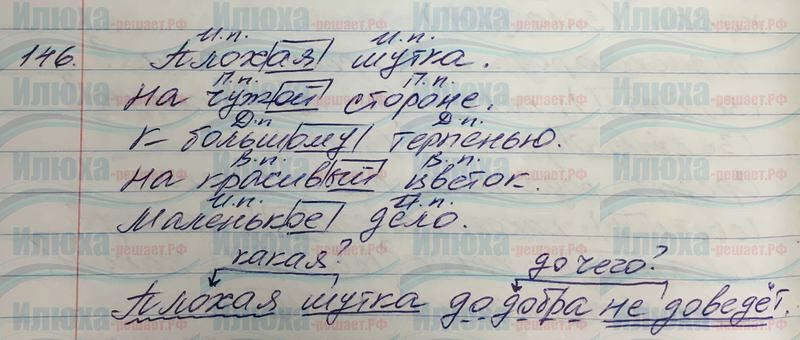 И.п. И.п.
146. Плохая шутка.
П.п. П.п.
На чужой стороне.
Д.п. Д.п.
К большому терпенью.
В.п. В.п.
На красивый цветок.
И.п. И.п.
Маленькое дело.
какая? до чего?
Плохая шутка до добра не доведёт.